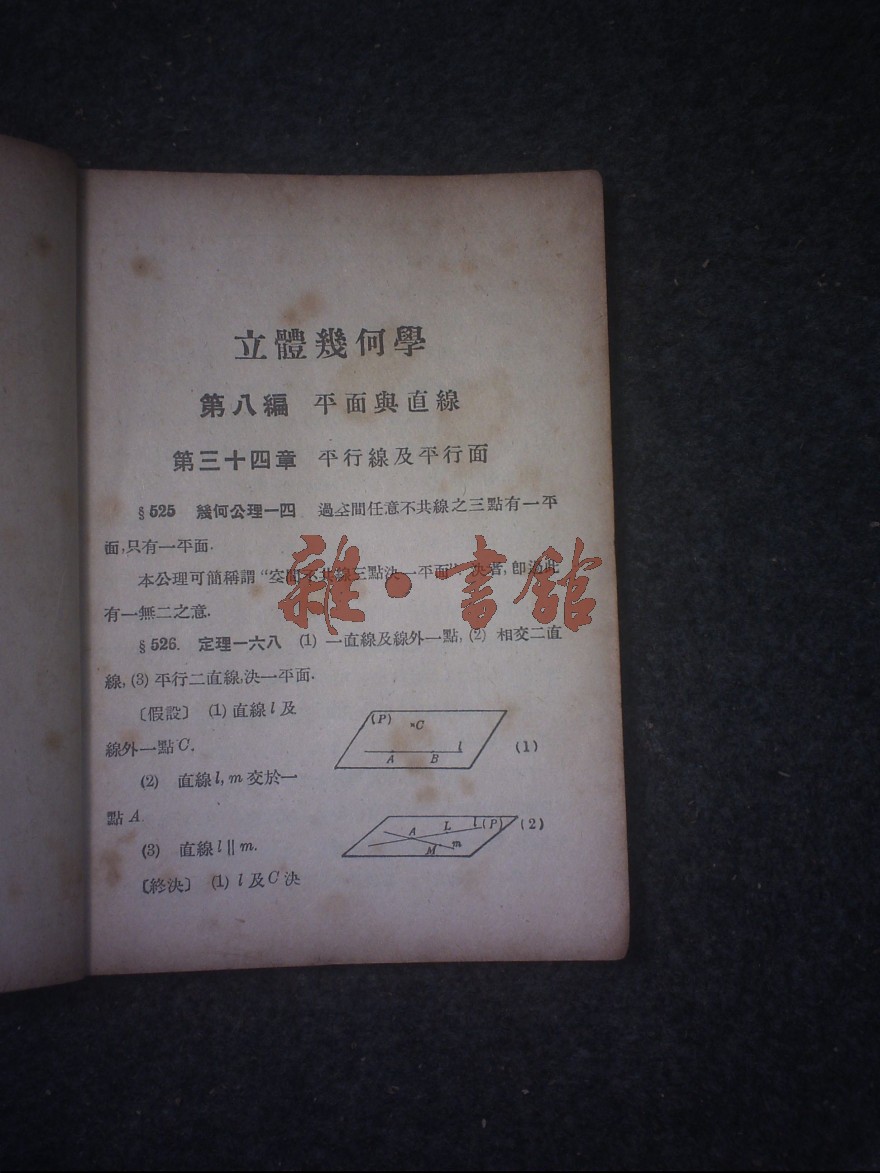 立體幾何學
第八編 平面與直線
第三十四章 平行線及平行面
§525 幾何公理一四 過空間任意不共線之三點有一平
面,只有一平面.
本公理可簡稱謂“空間不共線三點決一平面”決者,卽過此
有一無二之意.
§526. 定理一六八 (1) 一直線及線外一點, (2) 相交二直
線, (3) 平行二直線,決一平面.
〔假設〕 (1) 直線 l 及
線外一點 C.
(2) 直線 l, m 交於一
點 A.
(3) 直線 l ∥ m.
〔終決〕 (1) l 及 C 決
(P) C
A B l
(1)
A L l (P)
M m
(2)
雜·書館